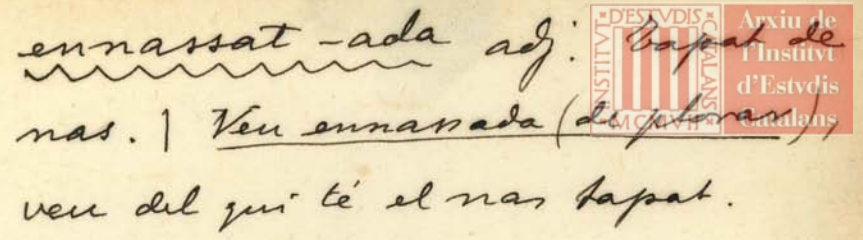 ennassat -ada adj. Tapat de
nas. | Veu ennassada (de ploran),
veu del qui té el nas tapat.
INSTITVT D'ESTVDIS CATALANS
MCMVII
Arxiu de
l'Institvt
d'Estvdis
Catalans